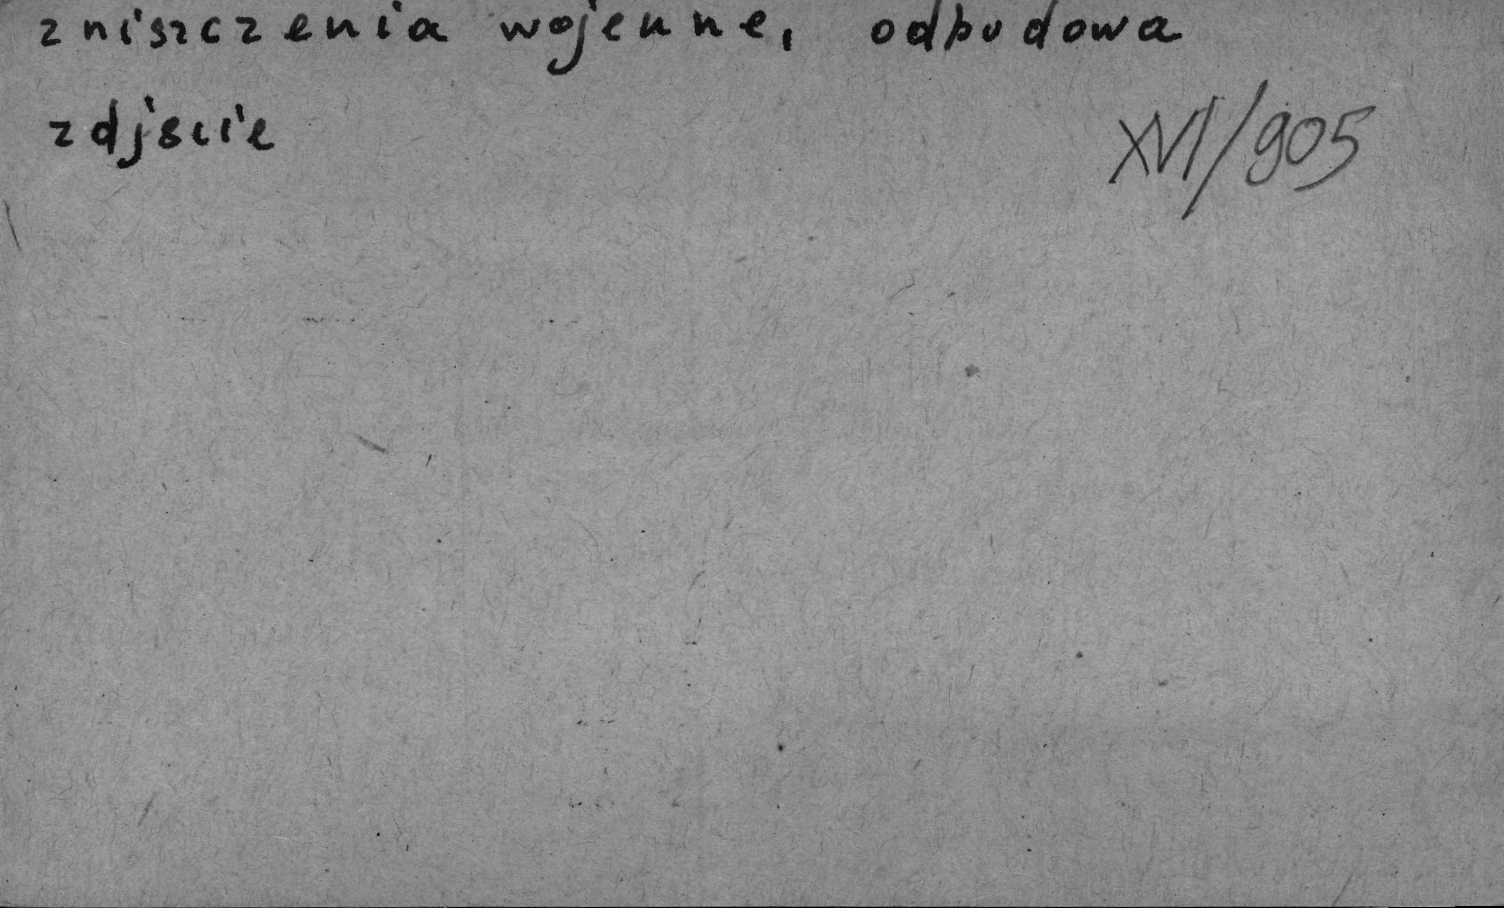 zniszczenia wojenne, odbudowa
zdjście
XVI/905